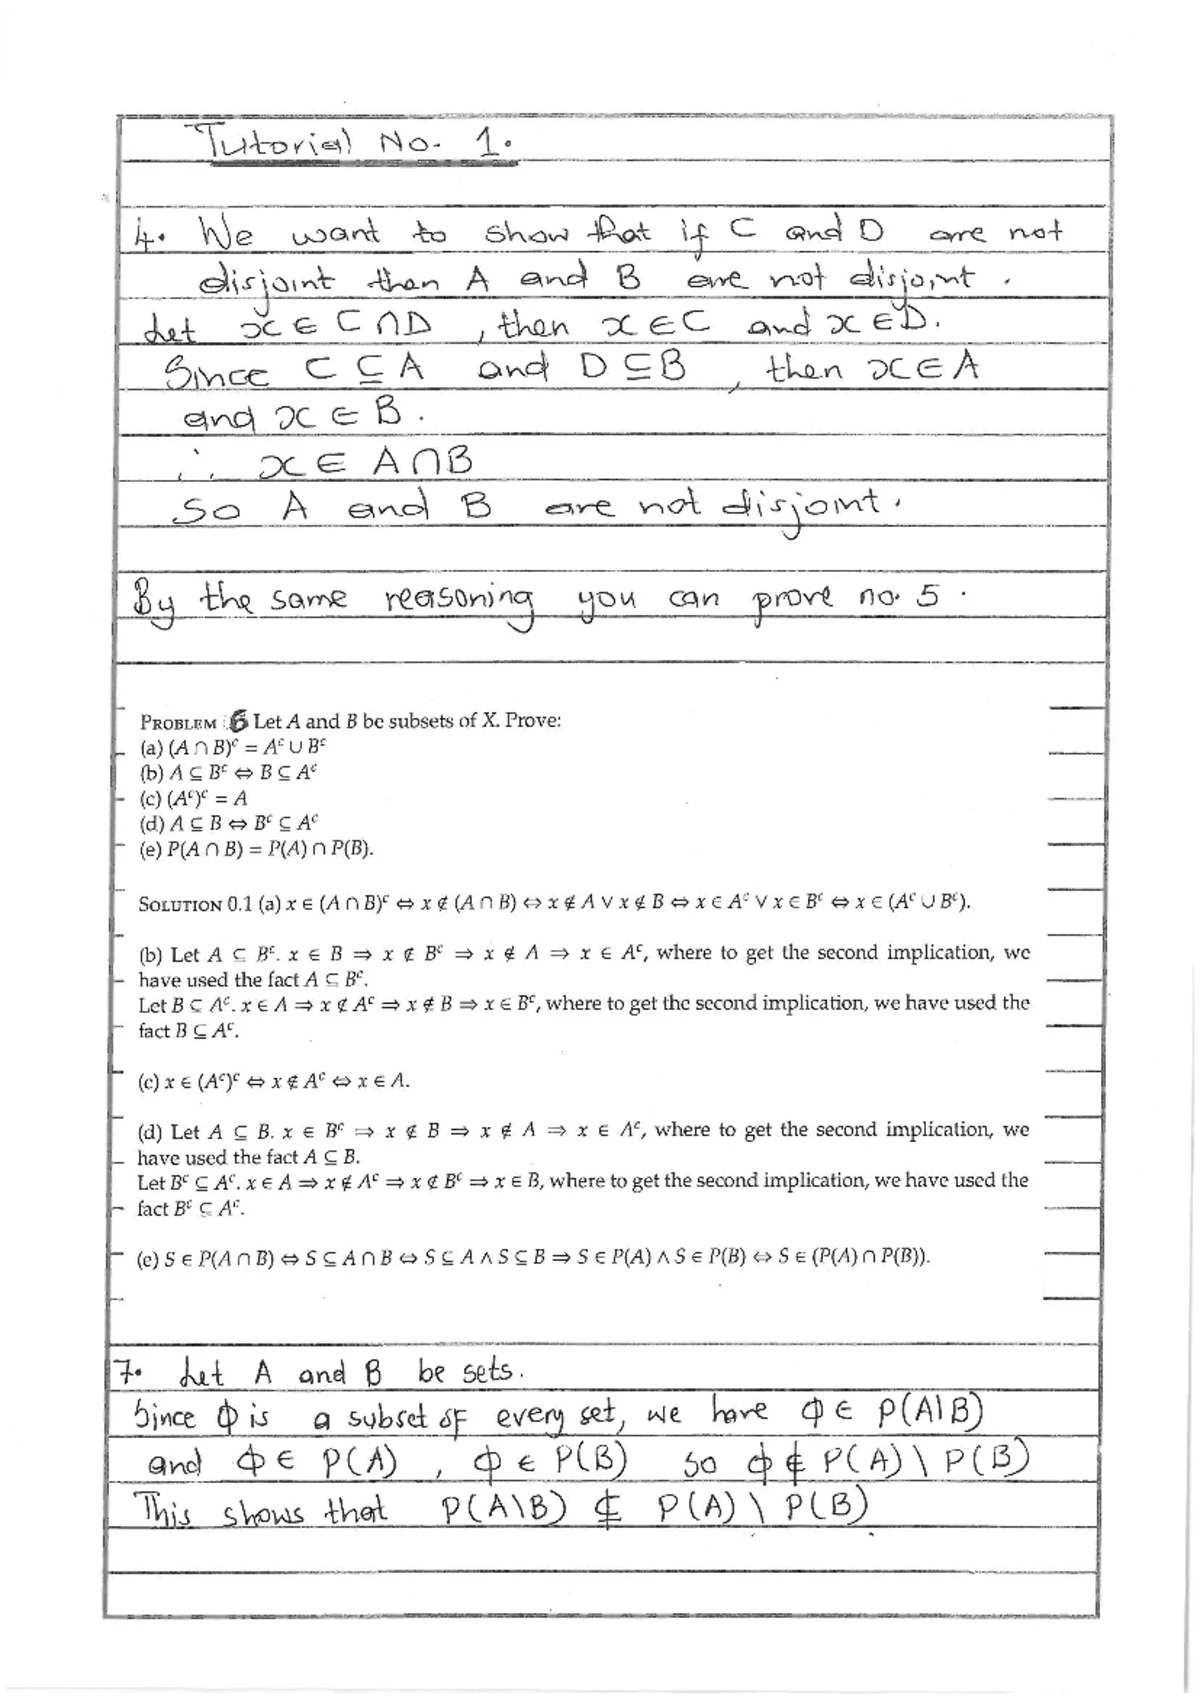 Tutorial No. 1.
4. We want to show that if C and D are not
disjoint then A and B are not disjoint.
Let x ∈ C ∩ D , then x ∈ C and x ∈ D.
Since C ⊆ A and D ⊆ B , then x ∈ A
and x ∈ B.
∴ x ∈ A ∩ B
So A and B are not disjoint.
By the same reasoning you can prove no. 5.
PROBLEM 6 Let A and B be subsets of X. Prove:
(a) (A ∩ B)ᶜ = Aᶜ ∪ Bᶜ
(b) A ⊆ Bᶜ ⇔ B ⊆ Aᶜ
(c) (Aᶜ)ᶜ = A
(d) A ⊆ B ⇔ Bᶜ ⊆ Aᶜ
(e) P(A ∩ B) = P(A) ∩ P(B).
SOLUTION 0.1 (a) x ∈ (A ∩ B)ᶜ ⇔ x ∉ (A ∩ B) ⇔ x ∉ A ∨ x ∉ B ⇔ x ∈ Aᶜ ∨ x ∈ Bᶜ ⇔ x ∈ (Aᶜ ∪ Bᶜ).
(b) Let A ⊆ Bᶜ. x ∈ B ⇒ x ∉ Bᶜ ⇒ x ∉ A ⇒ x ∈ Aᶜ, where to get the second implication, we
have used the fact A ⊆ Bᶜ.
Let B ⊆ Aᶜ. x ∈ A ⇒ x ∉ Aᶜ ⇒ x ∉ B ⇒ x ∈ Bᶜ, where to get the second implication, we have used the
fact B ⊆ Aᶜ.
(c) x ∈ (Aᶜ)ᶜ ⇔ x ∉ Aᶜ ⇔ x ∈ A.
(d) Let A ⊆ B. x ∈ Bᶜ ⇒ x ∉ B ⇒ x ∉ A ⇒ x ∈ Aᶜ, where to get the second implication, we
have used the fact A ⊆ B.
Let Bᶜ ⊆ Aᶜ. x ∈ A ⇒ x ∉ Aᶜ ⇒ x ∉ Bᶜ ⇒ x ∈ B, where to get the second implication, we have used the
fact Bᶜ ⊆ Aᶜ.
(e) S ∈ P(A ∩ B) ⇔ S ⊆ A ∩ B ⇔ S ⊆ A ∧ S ⊆ B ⇒ S ∈ P(A) ∧ S ∈ P(B) ⇔ S ∈ (P(A) ∩ P(B)).
7. Let A and B be sets.
Since Φ is a subset of every set, we have Φ ∈ P(A\B)
and Φ ∈ P(A) , Φ ∈ P(B) so Φ ∉ P(A) \ P(B)
This shows that P(A\B) ⊄ P(A) \ P(B)